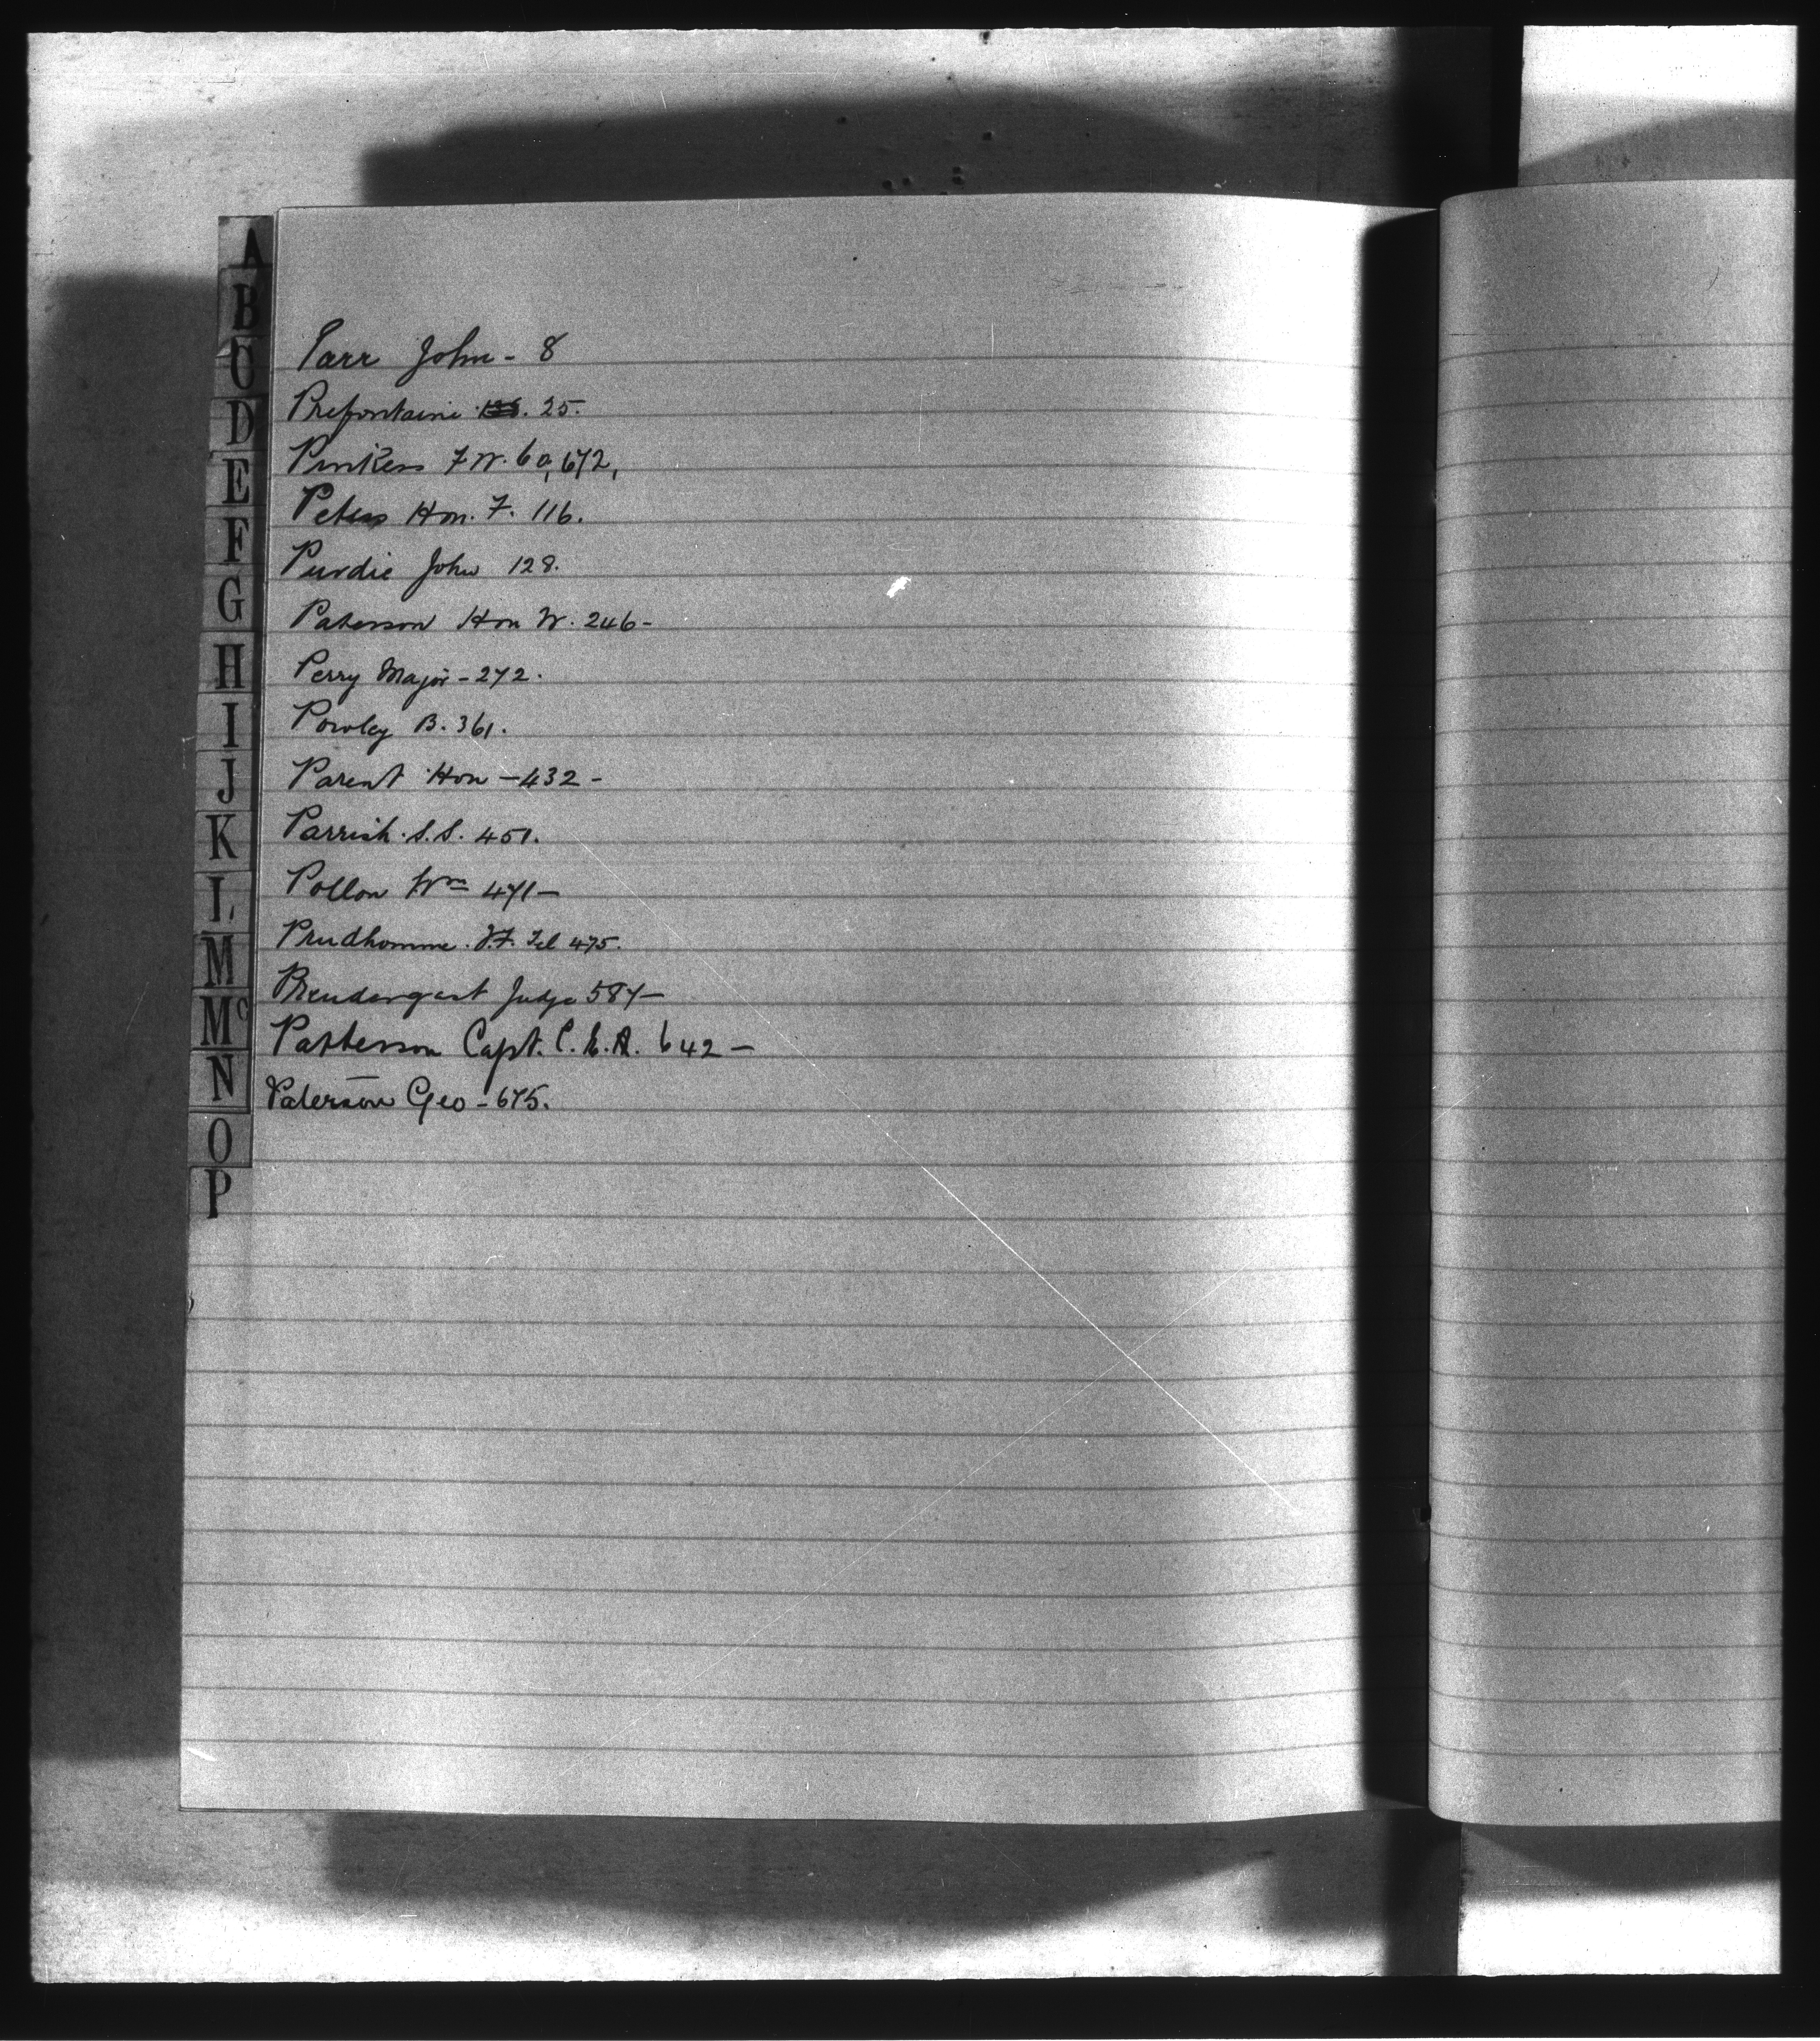 A
B
C
D
E
F
G
H
I
J
K
L
M
Mc
N
O
P
Parr John - 8
Prefontaine 25.
F W. 60, 672,
Peters Hon. F. 116.
Purdie John 128.
Paterson Hon W. 246-
Perry Major - 272.
Powley B. 361.
Parent Hon - 432 -
Parrish. S.S. 451.
Pollon Wm 471-
Prudhomme. 475.
Prendergast Judge 587-
Patterson Capt. C.E.A. 642 -
Paterson Geo - 675.